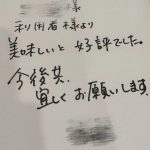 様
利用者様より
美味しいと好評でした。
今後共、
宜しくお願いします